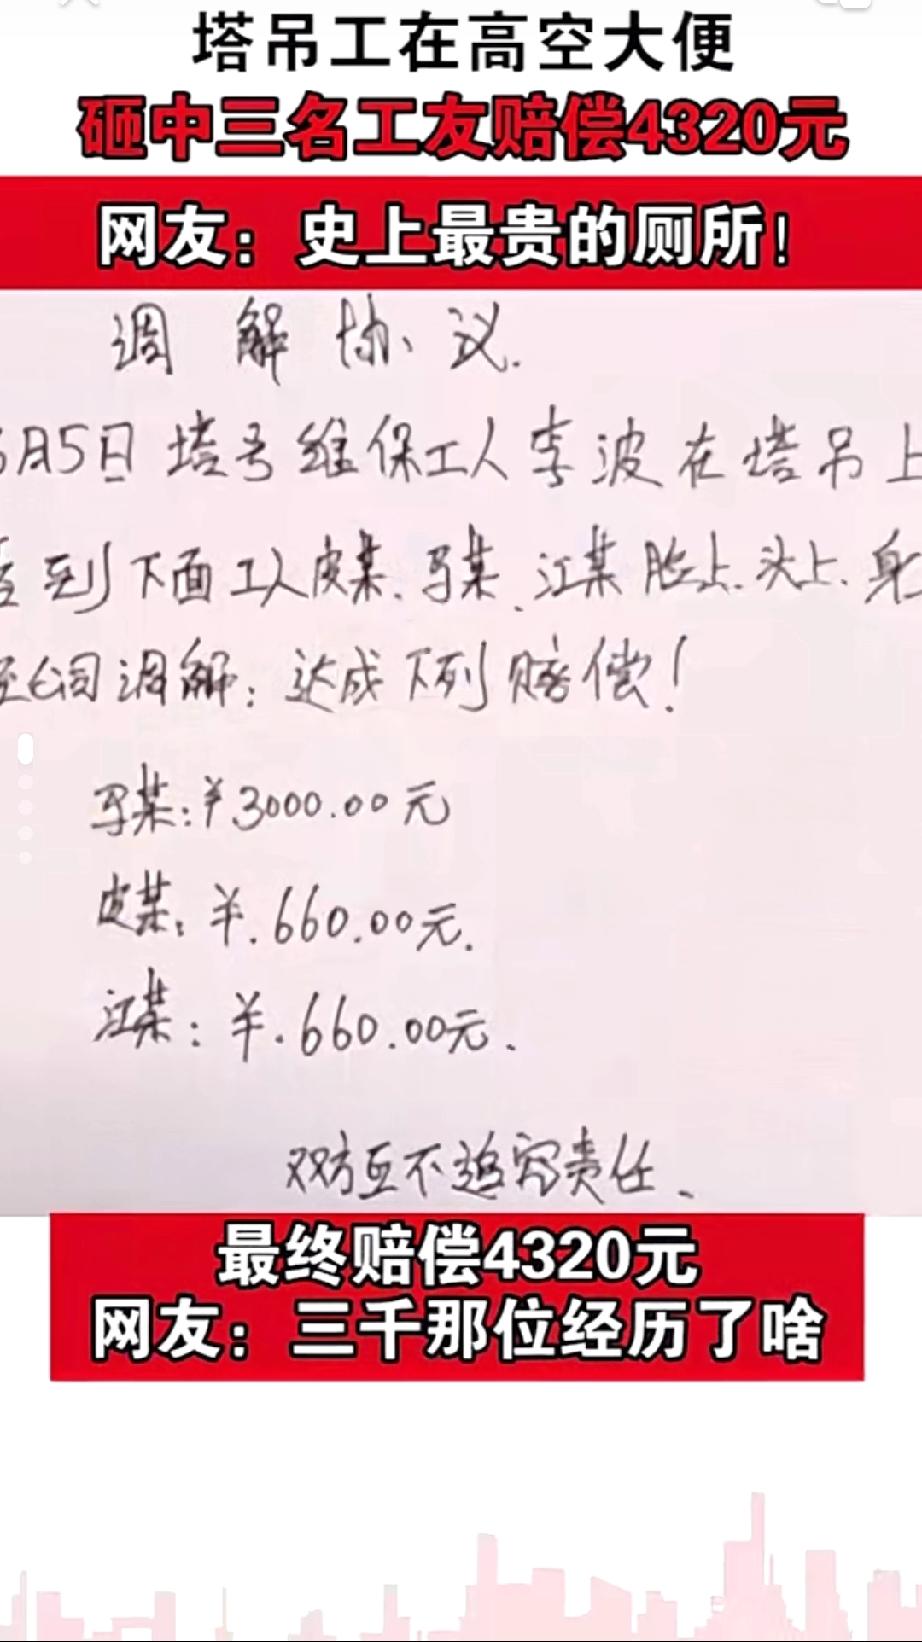 塔吊工在高空大便
砸中三名工友赔偿4320元
网友：史上最贵的厕所！
调解协议.
月5日塔号维保工人李波在塔吊上
到下面工人皮某.马某.江某脸上.头上.身
公司调解:达成下列赔偿!
马某:¥3000.00元
皮某:¥.660.00元.
江某:¥.660.00元.
双方互不追究责任、
最终赔偿4320元
网友：三千那位经历了啥